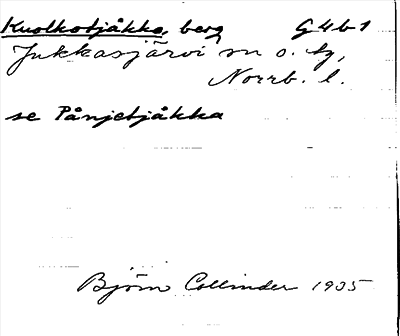 Kuolkotjåkko, berg G4b1
Jukkasjärvi sn o. tg,
Norrb. l.
se Pånjetjåkka
Björn Collinder 1935